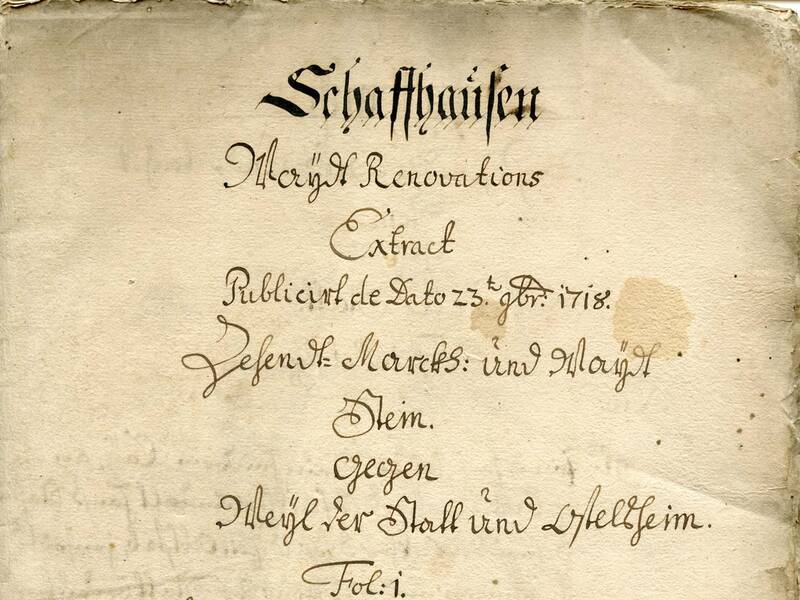 Schaffhaüsen
Waÿdt Renovations
Extract
Publicirt de Dato 23.t 9br: 1718.
Zehendt= Marckh: ünd Waÿdt
Stein.
gegen
Weÿl der Statt ünd Ostelsheim.
Fol: 1.